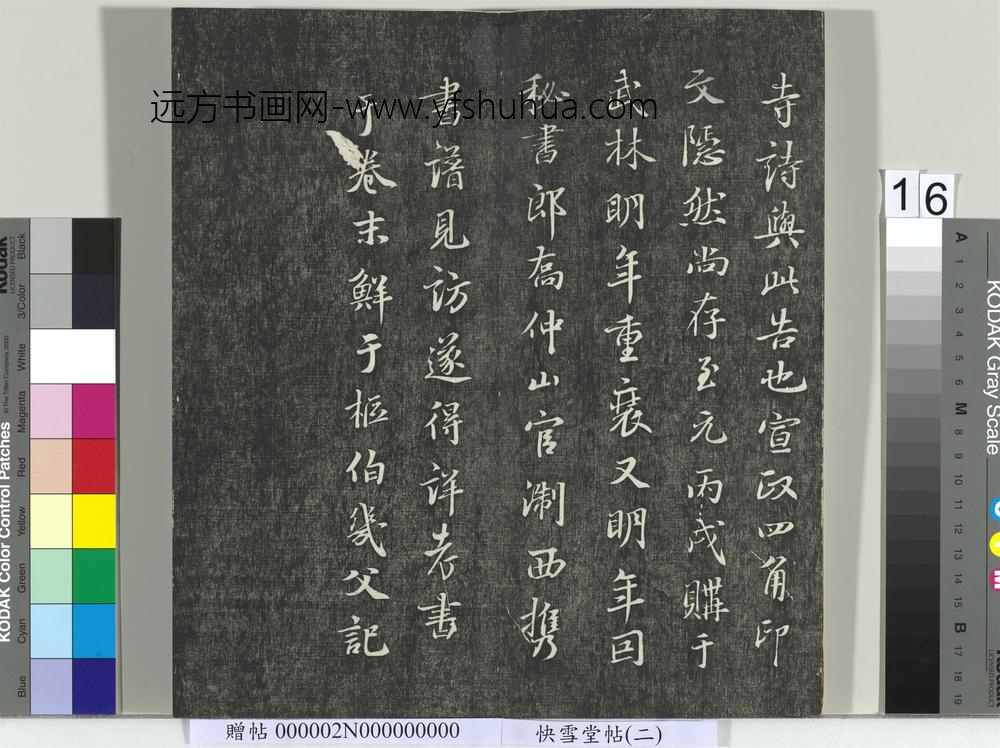 寺詩與此告也宣政四角印
文隱然尚存至元丙戌購于
武林明年重裝又明年回
秘書郎喬仲山官淛西携
書譜見訪遂得詳考書
于卷末鮮于樞伯幾父記
远方书画网-www.yfshuhua.com
16
贈帖 000002N000000000
快雪堂帖(二)
Kodak
LICENSED PRODUCT
KODAK Color Control Patches
© The Tiffen Company, 2000
Blue
Cyan
Green
Yellow
Red
Magenta
White
3/Color
Black
KODAK Gray Scale
A 1 2 3 4 5 6 M 8 9 10 11 12 13 14 15 B 17 18 19